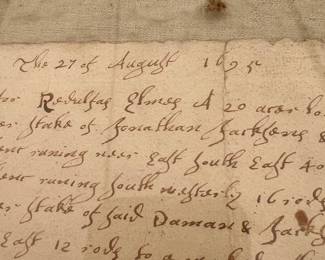 The 27 of August 1695
for Redulfas Elmes A 20 acer lo
er stake of Jonathan Jacksons &
ent runing neer East South East 40
lent runing South westerly 16 rods
er stake of said Daman & Jacks
East 12 rods to a